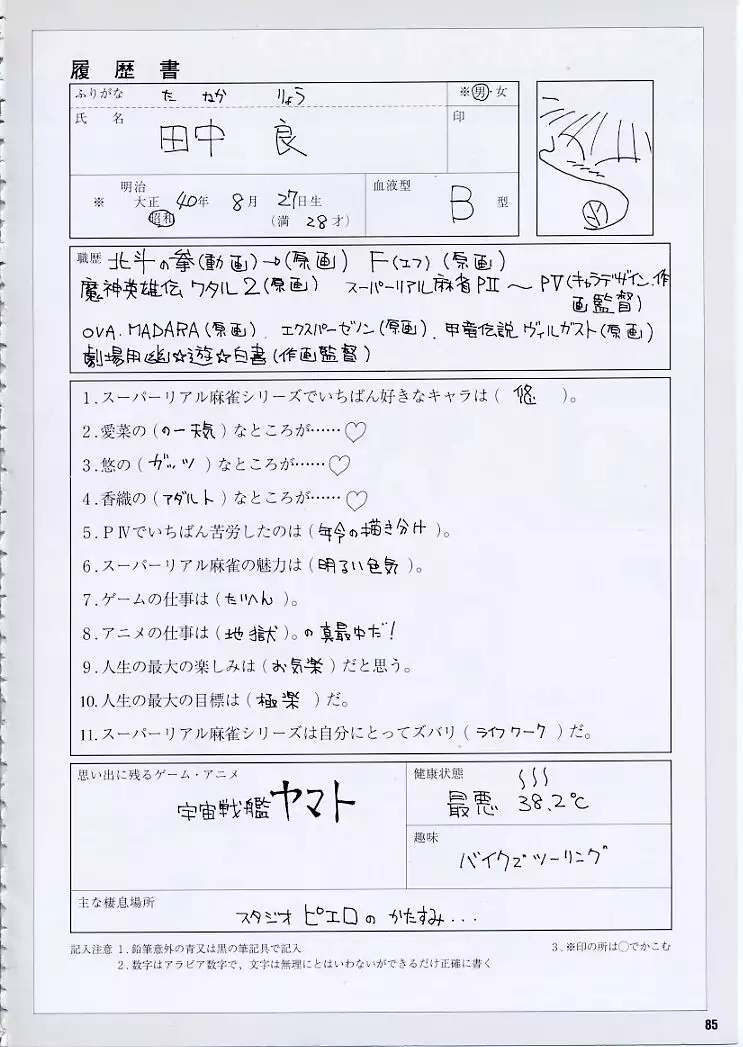 履歴書
ふりがな たなか りょう ※男・女
氏名 田中 良 印
明治
※ 大正 40年 8月 27日生 血液型 B 型
昭和 (満 28才)
職歴 北斗の拳(動画)→(原画) F(エフ)(原画)
魔神英雄伝ワタル2(原画) スーパーリアル麻雀PⅡ〜PⅤ(キャラデザイン.作
画監督)
OVA.MADARA(原画). エクスパーゼノン(原画). 甲竜伝説ヴィルガスト(原画)
劇場用幽☆遊☆白書(作画監督)
1.スーパーリアル麻雀シリーズでいちばん好きなキャラは( 悠 )。
2.愛菜の(のー天気)なところが……♡
3.悠の(ガッツ)なところが……♡
4.香織の(アダルト)なところが……♡
5.PⅣでいちばん苦労したのは(年令の描き分け)。
6.スーパーリアル麻雀の魅力は(明るい色気)。
7.ゲームの仕事は(たいへん)。
8.アニメの仕事は(地獄)。の真最中だ!
9.人生の最大の楽しみは(お気楽)だと思う。
10.人生の最大の目標は(極楽)だ。
11.スーパーリアル麻雀シリーズは自分にとってズバリ(ライフワーク)だ。
思い出に残るゲーム・アニメ
宇宙戦艦ヤマト
健康状態
最悪 38.2℃
趣味
バイクでツーリング
主な棲息場所
スタジオ ピエロの かたすみ...
記入注意 1.鉛筆意外の青又は黒の筆記具で記入 3.※印の所は○でかこむ
2.数字はアラビア数字で、文字は無理にとはいわないができるだけ正確に書く
85